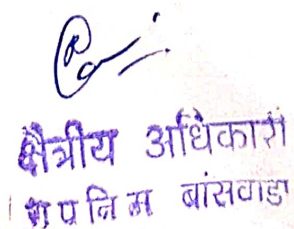 क्षैत्रीय अधिकारी
रा प नि म बांसवाडा